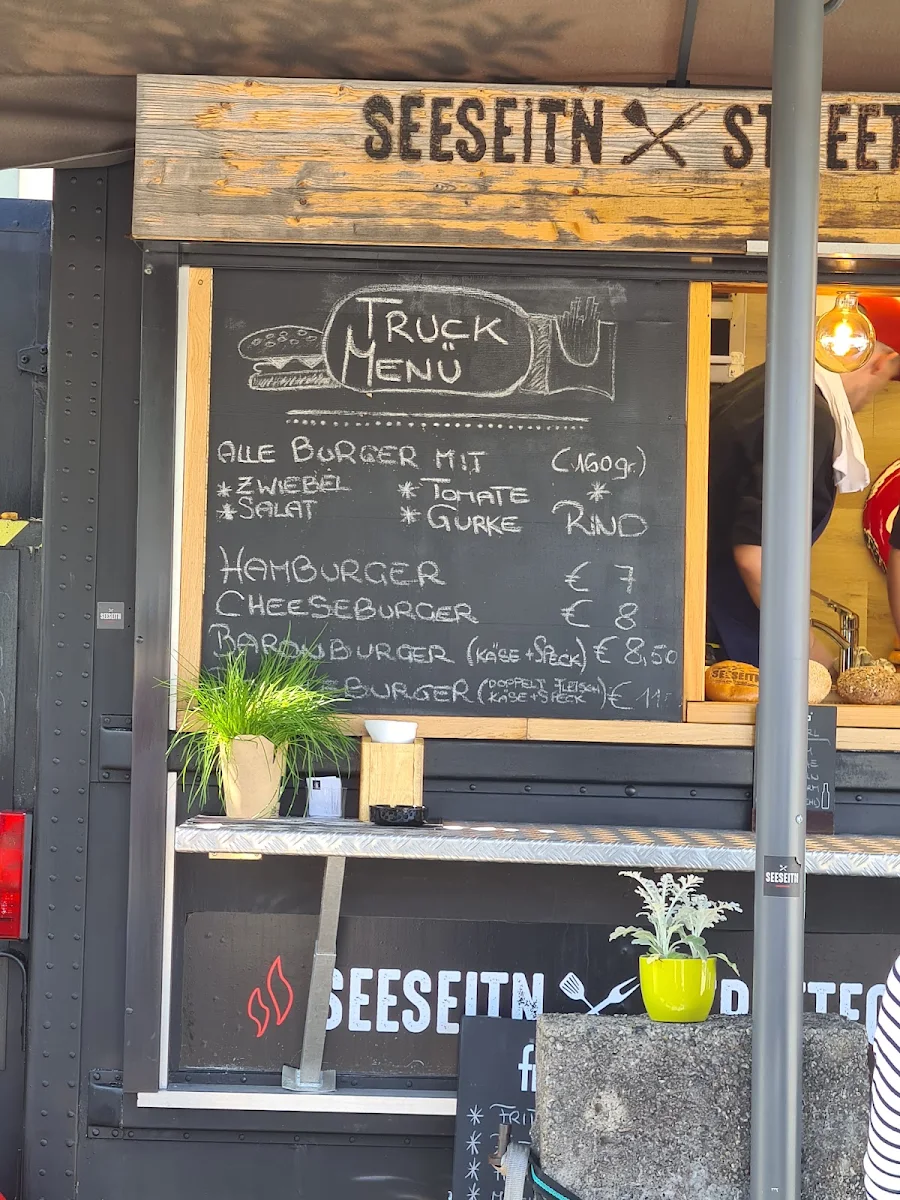 SEESEITN
TRUCK
MENÜ
ALLE BURGER MIT (160gr.)
* ZWIEBEL * TOMATE *
* SALAT * GURKE RIND
HAMBURGER € 7
CHEESEBURGER € 8
BARONBURGER (KÄSE + SPECK) € 8,50
BURGER (DOPPELT FLEISCH KÄSE + SPECK) € 11,-
SEESEITN
SEESEITN
SEESEITN
SEESEITN